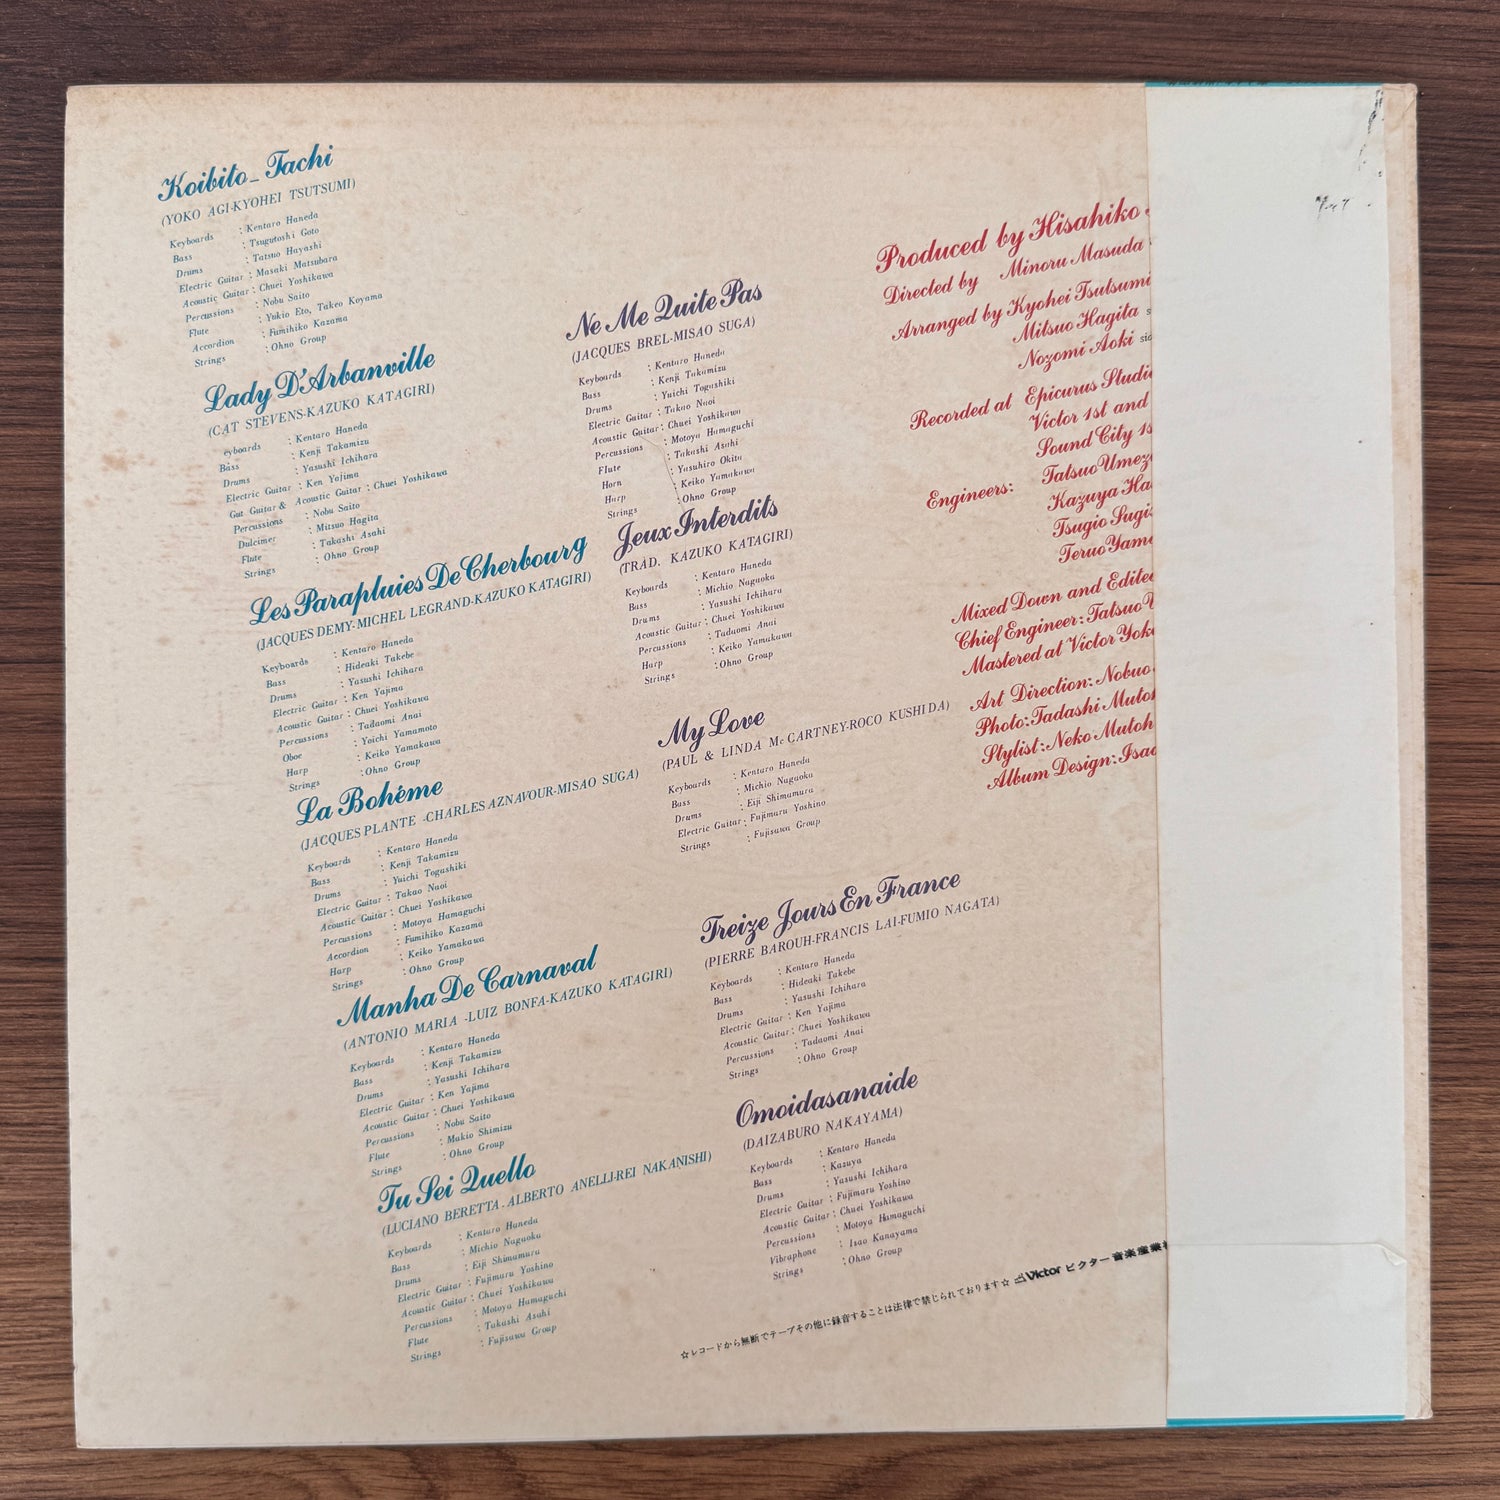 Koibito_Tachi
(YOKO AGI-KYOHEI TSUTSUMI)
Keyboards : Kentaro Haneda
Bass : Tsugutoshi Goto
Drums : Tatsuo Hayashi
Electric Guitar : Masaki Matsubara
Acoustic Guitar : Chuei Yoshikawa
Percussions : Nobu Saito
Flute : Yukio Eto, Takeo Koyama
Accordion : Fumihiko Kazama
Strings : Ohno Group
Lady D'Arbanville
(CAT STEVENS-KAZUKO KATAGIRI)
eyboards : Kentaro Haneda
Bass : Kenji Takamizu
Drums : Yasushi Ichihara
Electric Guitar : Ken Yajima
Gut Guitar & Acoustic Guitar : Chuei Yoshikawa
Percussions : Nobu Saito
Dulcimer : Mitsuo Hagita
Flute : Takashi Asahi
Strings : Ohno Group
Les Parapluies De Cherbourg
(JACQUES DEMY-MICHEL LEGRAND-KAZUKO KATAGIRI)
Keyboards : Kentaro Haneda
Bass : Hideaki Takebe
Drums : Yasushi Ichihara
Electric Guitar : Ken Yajima
Acoustic Guitar : Chuei Yoshikawa
Percussions : Tadaomi Anai
Oboe : Yoichi Yamamoto
Harp : Keiko Yamakawa
Strings : Ohno Group
La Bohéme
(JACQUES PLANTE -CHARLES AZNAVOUR-MISAO SUGA)
Keyboards : Kentaro Haneda
Bass : Kenji Takamizu
Drums : Yuichi Togashiki
Electric Guitar : Takao Naoi
Acoustic Guitar : Chuei Yoshikawa
Percussions : Motoya Hamaguchi
Accordion : Fumihiko Kazama
Harp : Keiko Yamakawa
Strings : Ohno Group
Manha De Carnaval
(ANTONIO MARIA -LUIZ BONFA-KAZUKO KATAGIRI)
Keyboards : Kentaro Haneda
Bass : Kenji Takamizu
Drums : Yasushi Ichihara
Electric Guitar : Ken Yajima
Acoustic Guitar : Chuei Yoshikawa
Percussions : Nobu Saito
Flute : Makio Shimizu
Strings : Ohno Group
Tu Sei Quello
(LUCIANO BERETTA-ALBERTO ANELLI-REI NAKANISHI)
Keyboards : Kentaro Haneda
Bass : Michio Nagaoka
Drums : Eiji Shimamura
Electric Guitar : Fujimaru Yoshino
Acoustic Guitar : Chuei Yoshikawa
Percussions : Motoya Hamaguchi
Flute : Takashi Asahi
Strings : Fujisawa Group
Ne Me Quite Pas
(JACQUES BREL-MISAO SUGA)
Keyboards : Kentaro Haneda
Bass : Kenji Takamizu
Drums : Yuichi Togashiki
Electric Guitar : Takao Naoi
Acoustic Guitar : Chuei Yoshikawa
Percussions : Motoya Hamaguchi
Flute : Takashi Asahi
Horn : Yasuhiro Okita
Harp : Keiko Yamakawa
Strings : Ohno Group
Jeux Interdits
(TRAD. KAZUKO KATAGIRI)
Keyboards : Kentaro Haneda
Bass : Michio Nagaoka
Drums : Yasushi Ichihara
Acoustic Guitar : Chuei Yoshikawa
Percussions : Tadaomi Anai
Harp : Keiko Yamakawa
Strings : Ohno Group
My Love
(PAUL & LINDA Mc CARTNEY-ROCO KUSHIDA)
Keyboards : Kentaro Haneda
Bass : Michio Nagaoka
Drums : Eiji Shimamura
Electric Guitar : Fujimaru Yoshino
Strings : Fujisawa Group
Treize Jours En France
(PIERRE BAROUH-FRANCIS LAI-FUMIO NAGATA)
Keyboards : Kentaro Haneda
Bass : Hideaki Takebe
Drums : Yasushi Ichihara
Electric Guitar : Ken Yajima
Acoustic Guitar : Chuei Yoshikawa
Percussions : Tadaomi Anai
Strings : Ohno Group
Omoidasanaide
(DAIZABURO NAKAYAMA)
Keyboards : Kentaro Haneda
Bass : Kazuya
Drums : Yasushi Ichihara
Electric Guitar : Fujimaru Yoshino
Acoustic Guitar : Chuei Yoshikawa
Percussions : Motoya Hamaguchi
Vibraphone : Isao Kanayama
Strings : Ohno Group
Produced by Hisahiko
Directed by Minoru Masuda
Arranged by Kyohei Tsutsumi
Mitsuo Hagita
Nozomi Aoki
Recorded at Epicurus Studi
Victor 1st and
Sound City 1s
Engineers: Tatsuo Umez
Kazuya Ha
Tsugio Sugi
Teruo Yam
Mixed Down and Edite
Chief Engineer: Tatsuo
Mastered at Victor Yok
Art Direction: Nobuo
Photo: Tadashi Mutoh
Stylist: Neko Mutoh
Album Design: Isao
☆レコードから無断でテープその他に録音することは法律で禁じられております☆ Victor ビクター音楽産業